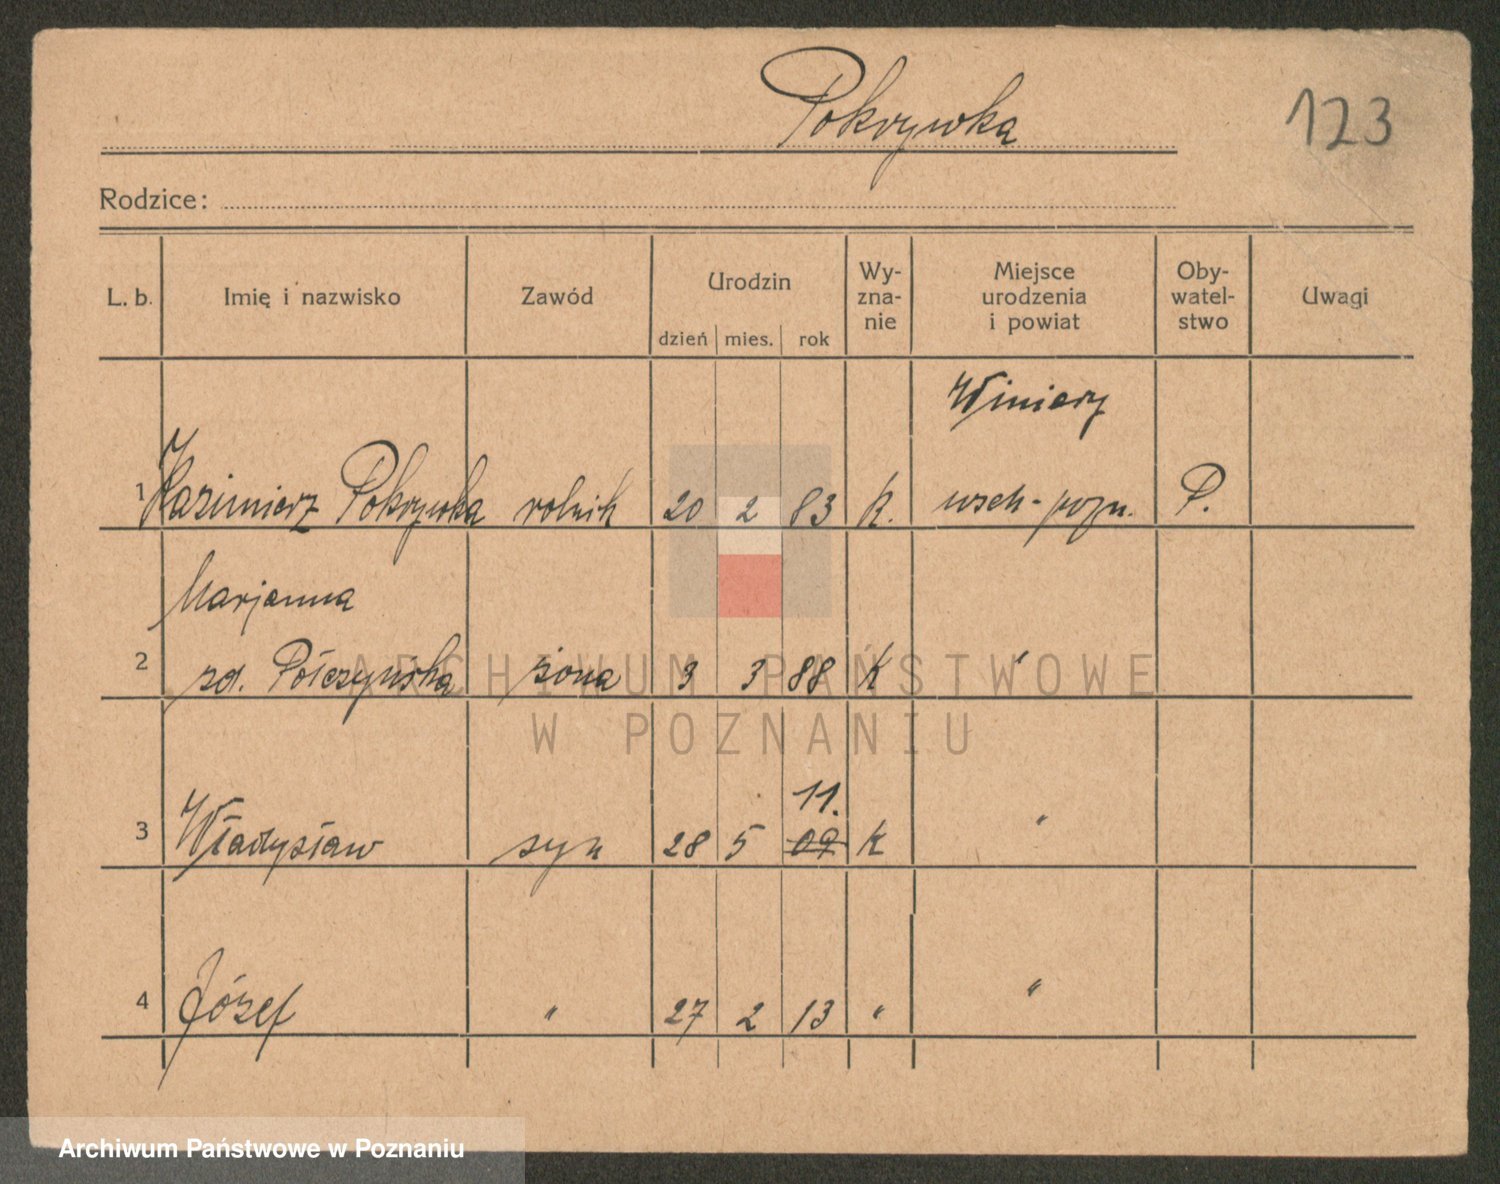 Pokrywka
123
Rodzice:
L. b. Imię i nazwisko Zawód Urodzin dzień mies. rok Wy-zna-nie Miejsce urodzenia i powiat Oby-watel-stwo Uwagi
Winiary
1 Kazimierz Pokrywka rolnik 20 2 83 K. wsch-pozn. P.
Marjanna
2 zd. Połczyńska żona 3 3 88 K "
11.
3 Władysław syn 28 5 09 K "
4 Józef " 27 2 13 " "
ARCHIWUM PAŃSTWOWE
W POZNANIU
Archiwum Państwowe w Poznaniu